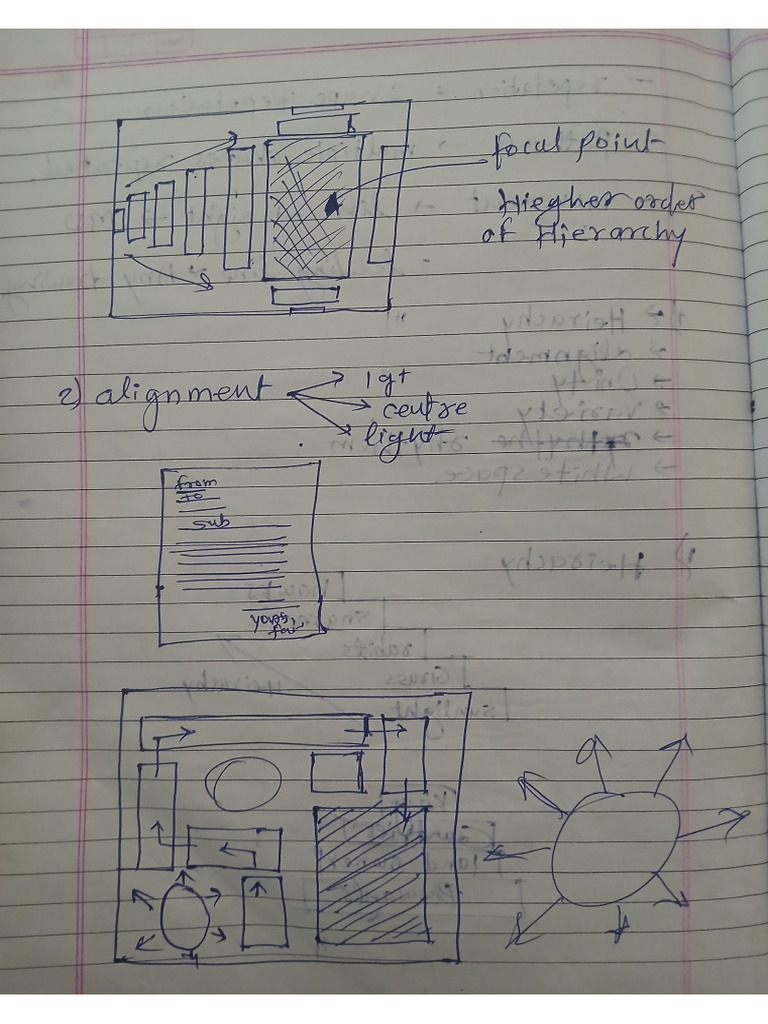 focal point
Hiegher order
of Hierarchy
2) alignment
lgt
centre
light
from
to
sub
yours,